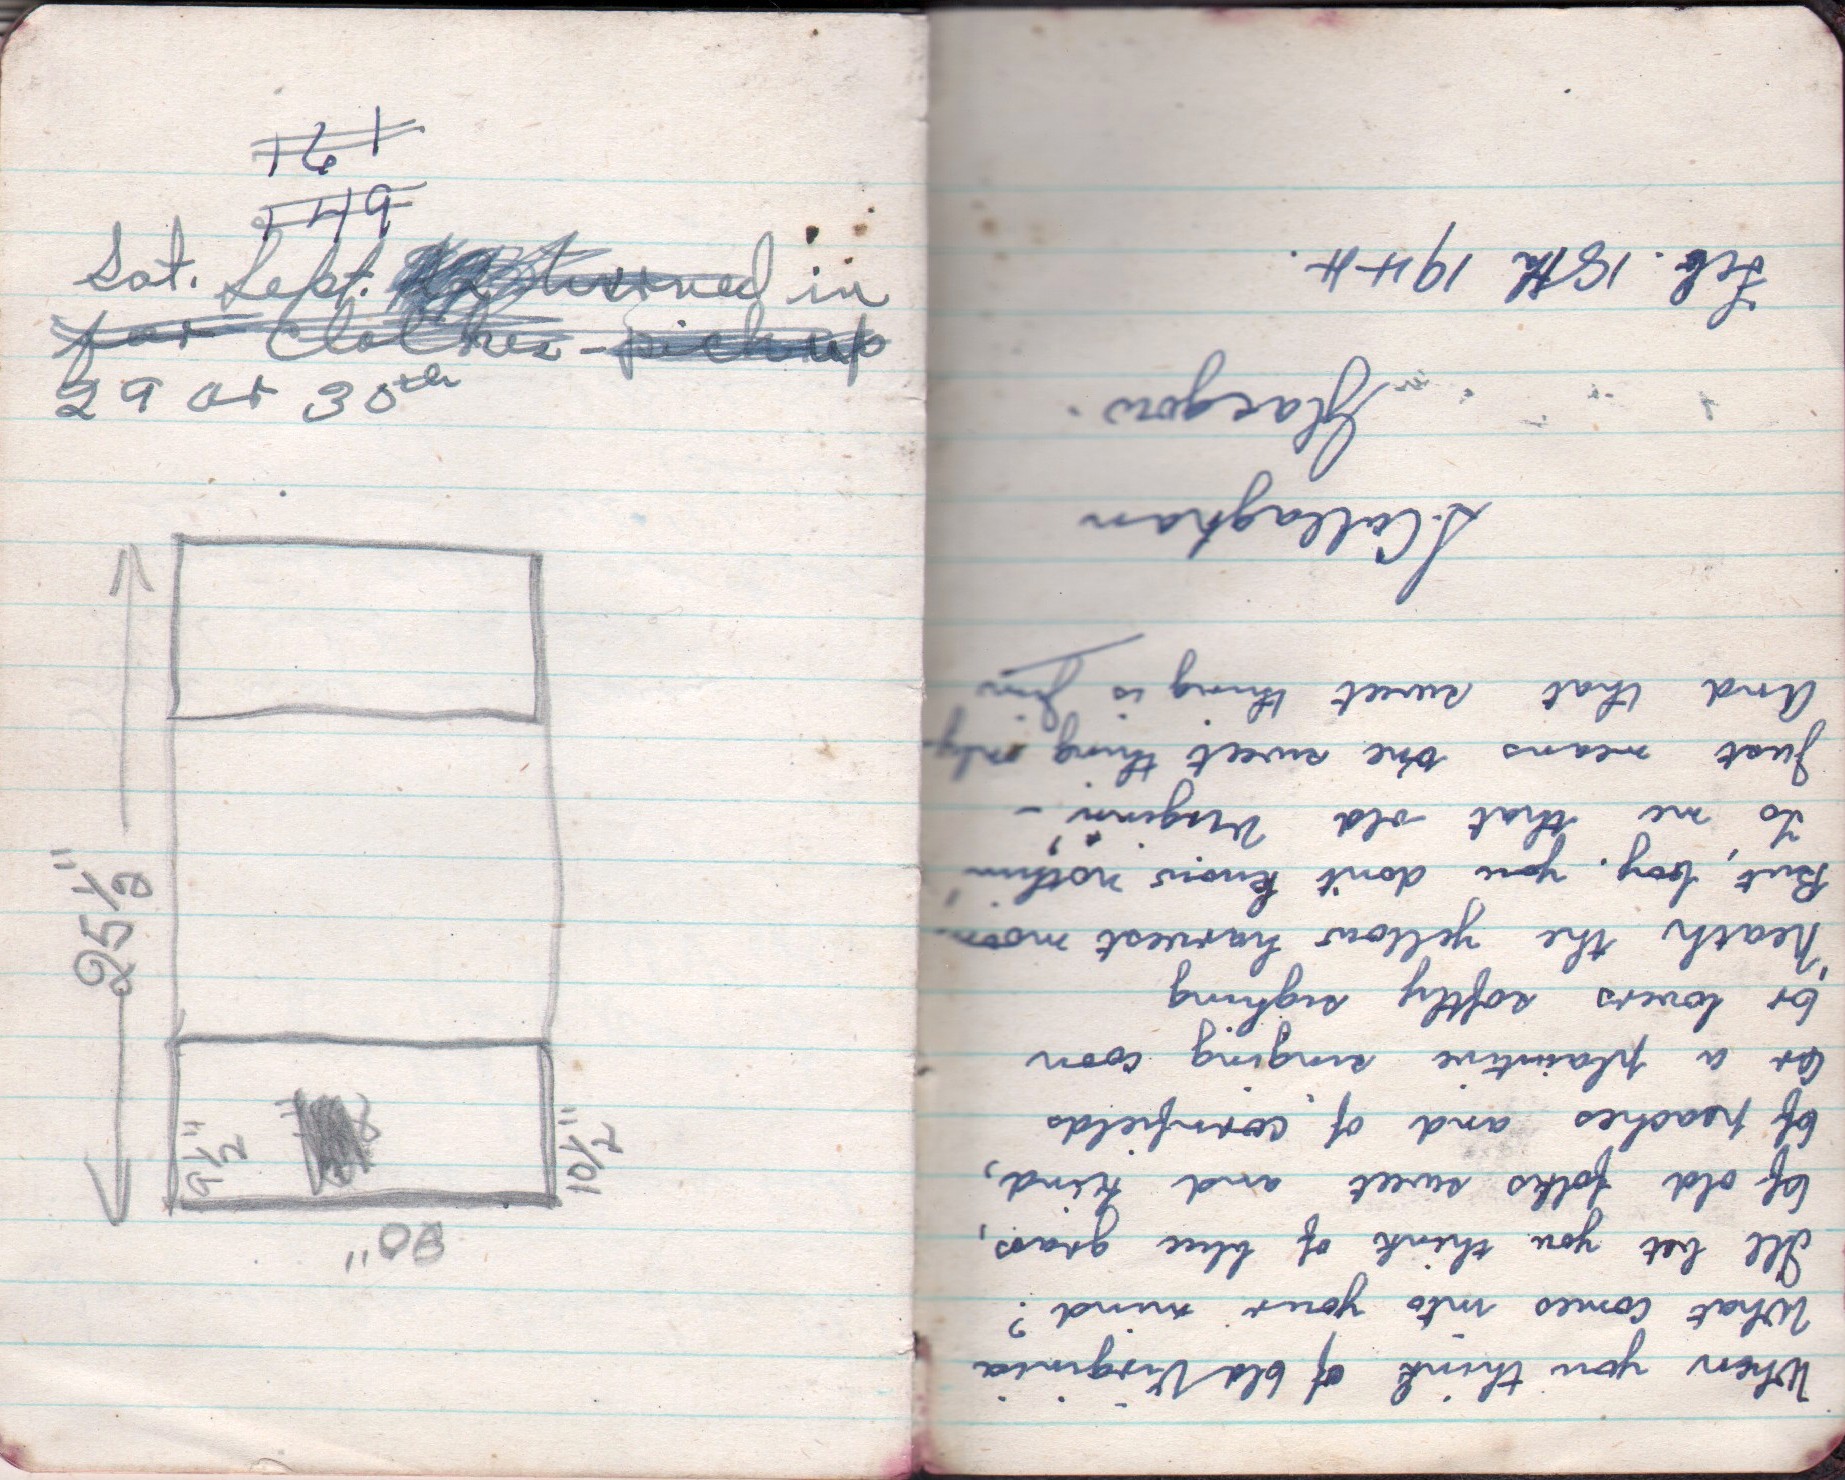 Sat. Sept. turned in
for clothes - pickup
29 or 30th
25 1/2"
9 1/2"
10 1/2"
20"
When you think of old Virginia
What comes into your mind?
I'll bet you think of blue grass,
Of old folks sweet and kind,
Of peaches and of cornfields
Or a plaintive singing coon
Or lovers softly sighing
'neath the yellow harvest moon.
But, boy, you don't know nothin'
To me that old Virginn' -
Just means one sweet thing only-
And that sweet thing is Jinn
S. Callaghan
Glasgow.
Feb. 18th 1944.